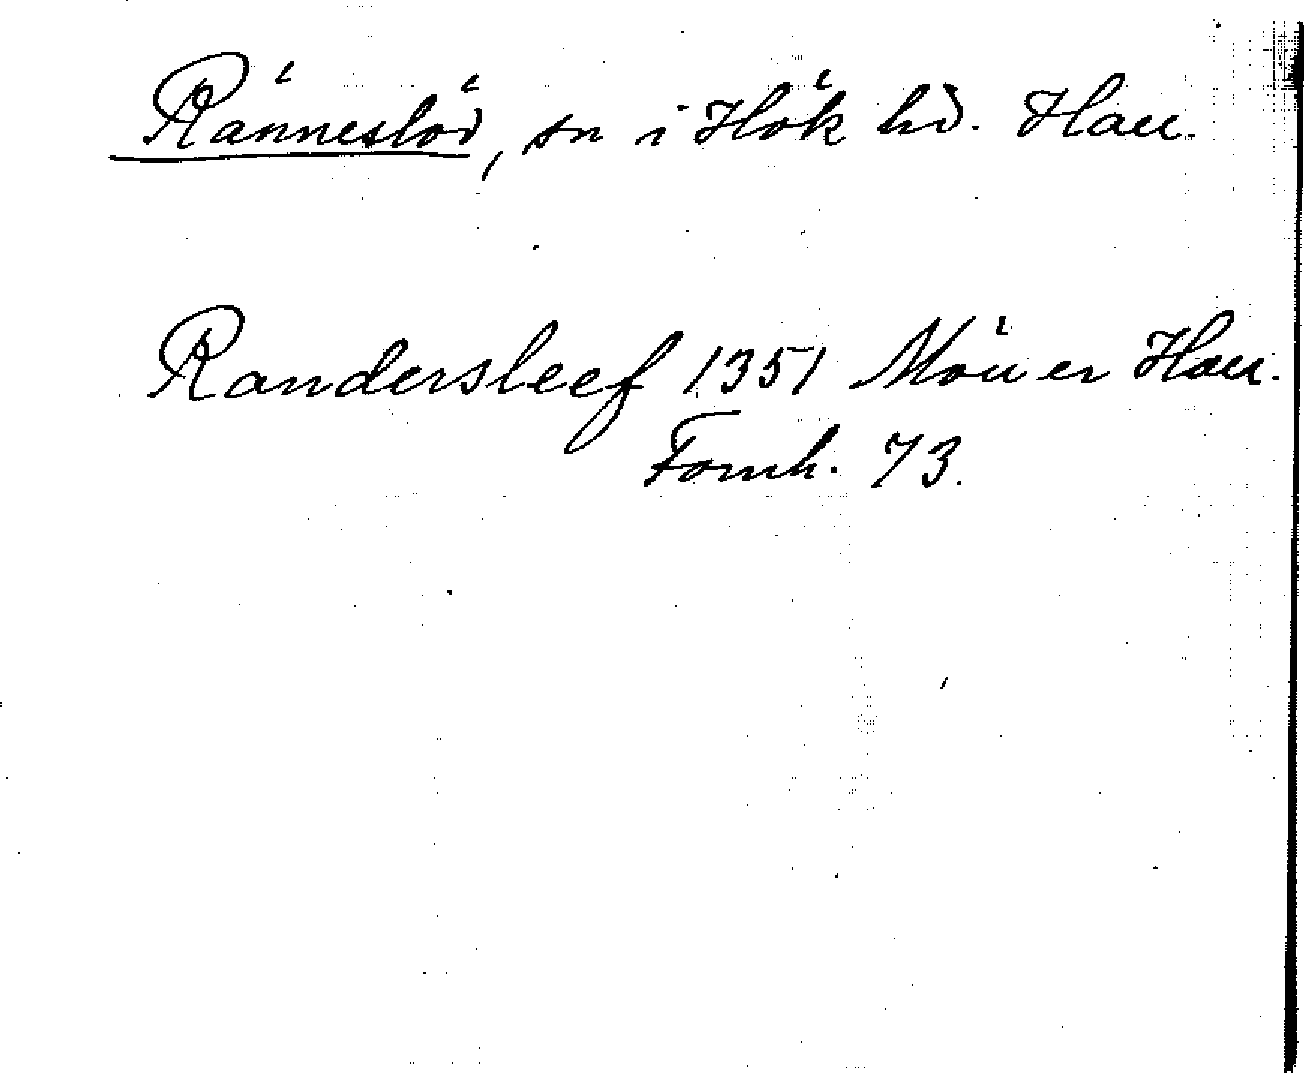 Ränneslöv, sn i Hök hd. Hall.
Randersleef 1351 Möller Hall.
Fornh. 73.